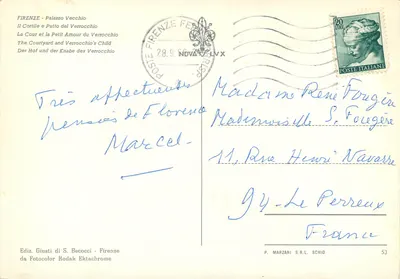 FIRENZE - Palazzo Vecchio
Il Cortile e Putto del Verrocchio
La Cour et le Petit Amour du Verrocchio
The Courtyard and Verrocchio's Child
Der Hof und der Knabe des Verrocchio
POSTE FIRENZE FERROVIA
NOVA LVX
POSTE ITALIANE
Très affectueuses
pensées de Florence
Marcel
Madame René Fougère
Mademoiselle S. Fougère
11, Rue Henri Navarre
94 - Le Perreux
France
Ediz. Giusti di S. Becocci - Firenze
da Fotocolor Kodak Ektachrome
P. MARZARI S.R.L. SCHIO